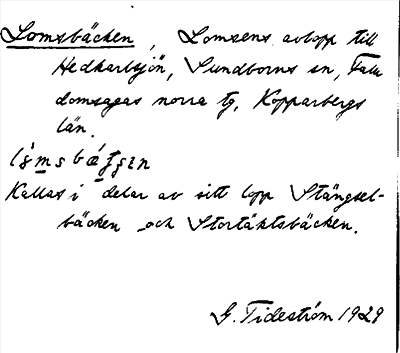 Lomsbäcken, Lomsens avlopp till
Hedkarlsjön, Sundborns sn, Falu
domsagas norra tg, Kopparbergs
län.
Kallas i delar av sitt lopp Stängsel-
bäcken och Stortäktsbäcken.
G. Tideström 1929